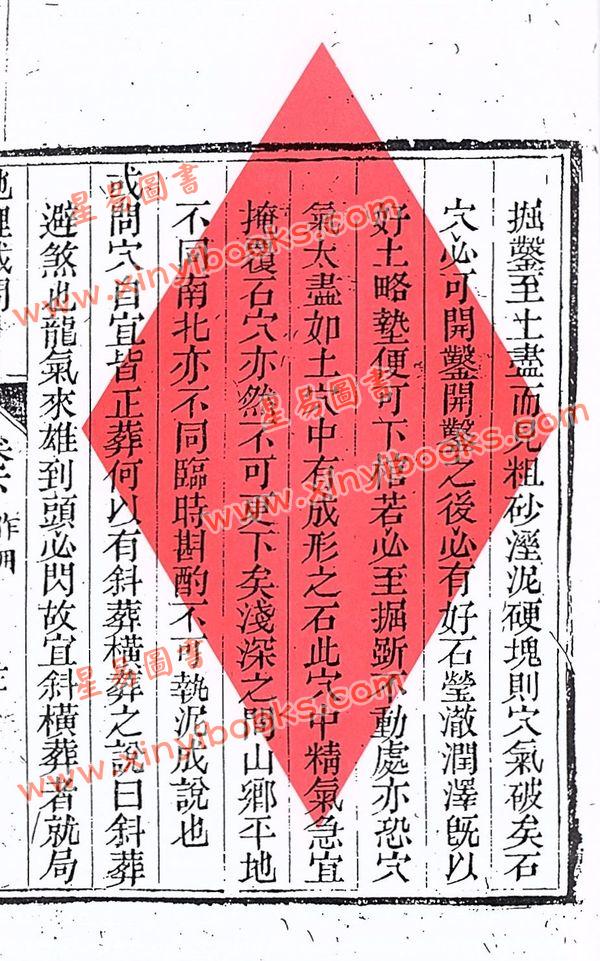 掘鑿至土盡而見粗砂溼泥硬塊則穴氣破矣石
穴必可開鑿開鑿之後必有好石瑩澈潤澤旣以
好土略墊便可下棺若必至掘斲不動處亦恐穴
氣太盡如土穴中有成形之石此穴中精氣急宜
掩覆石穴亦然不可更下矣淺深之間山鄉平地
不同南北亦不同臨時斟酌不可執泥成說也
或問穴自宜皆正葬何以有斜葬橫葬之說曰斜葬
避煞也龍氣來雄到頭必閃故宜斜橫葬者就局
作用
星易圖書
www.xinyibooks.com
星易圖書
www.xinyibooks.com
星易圖書
www.xinyibooks.com